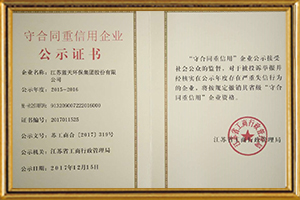 守合同重信用企业
公示证书
企业名称：江苏蓝天环保集团股份有限
公司
公示年度：2015—2016
证书编号：2017011523
公示文号：苏工商合〔2017〕319号
公示机关：江苏省工商行政管理局
公示日期：2017年12月15日
“守合同重信用”企业公示接受
社会公众的监督。对于被投诉举报并
经核实在公示年度存在严重失信行为
的企业，将按规定撤销其省级“守合
同重信用”企业资格。
江苏省工商行政管理局